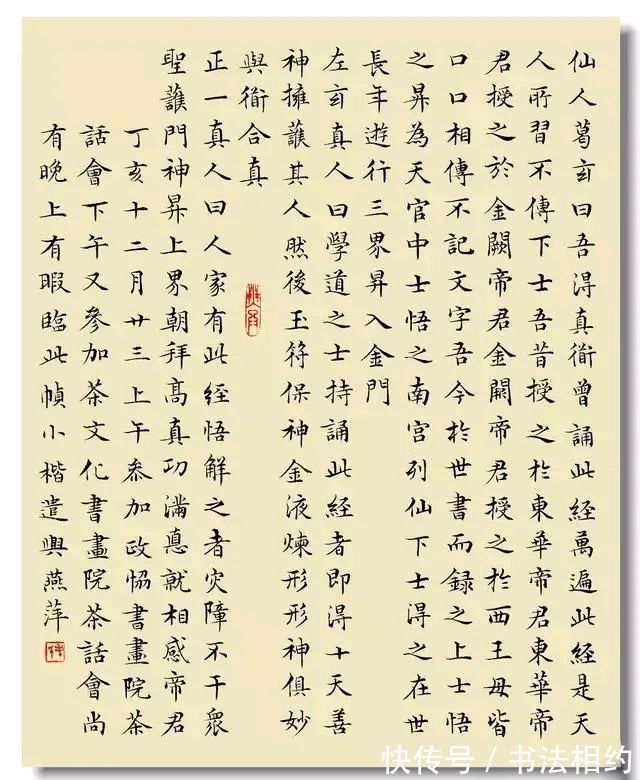 仙人葛玄曰吾得真衜曾誦此經萬遍此經是天
人所習不傳下士吾昔授之於東華帝君東華帝
君授之於金闕帝君金闕帝君授之於西王母皆
口口相傳不記文字吾今於世書而録之上士悟
之昇為天官中士悟之南宫列仙下士得之在世
長年遊行三界昇入金門
左玄真人曰學道之士持誦此經者即得十天善
神擁護其人然後玉符保神金液煉形形神俱妙
與衜合真
正一真人曰人家有此經悟解之者灾障不干眾
聖護門神昇上界朝拜高真功滿悳就相感帝君
丁亥十二月廿三上午参加政協書畫院茶
話會下午又參加茶文化書畫院茶話會尚
有晚上有暇臨此幀小楷遣興燕萍
快传号/书法相约